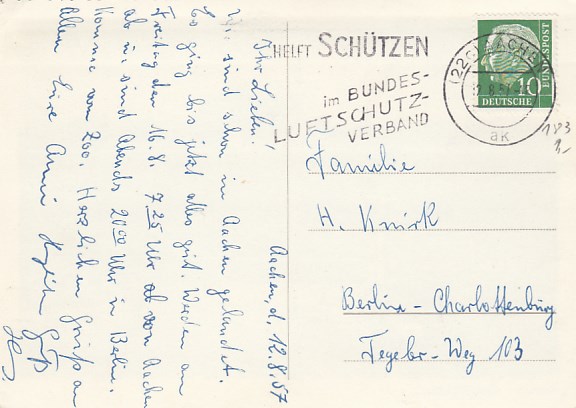 Aachen, d. 12.8.57
Ihr Lieben!
Wir sind schon in Aachen gelandet.
Es ging bis jetzt alles gut. Werden am
Freitag den 16.8. 7 25 Uhr ab von Aachen
ab u. sind Abends 20 00 Uhr in Berlin.
Komme vom Zoo. Herzlichen Gruß an
Allen Eure Anni
HELFT SCHÜTZEN
im BUNDES-
LUFTSCHUTZ-
VERBAND
(22c) AACHEN
12.8.57
ak
10
DEUTSCHE
BUNDESPOST
183
Familie
H. Knirk
Berlin-Charlottenburg
Tegeler-Weg 103